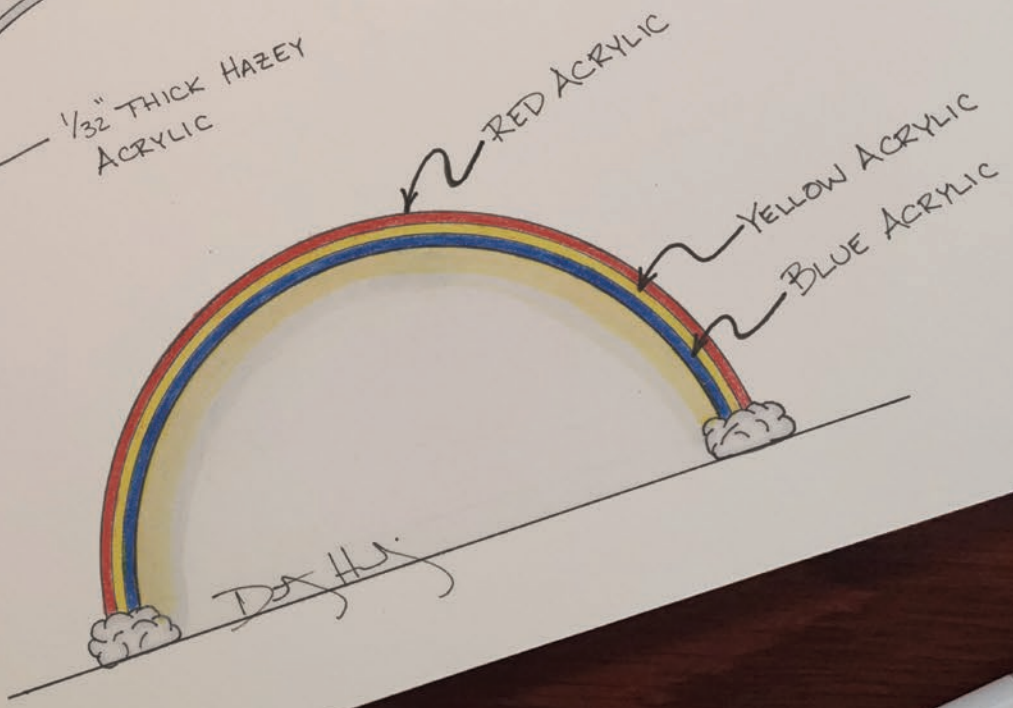 1/32" THICK HAZEY
ACRYLIC
RED ACRYLIC
YELLOW ACRYLIC
BLUE ACRYLIC